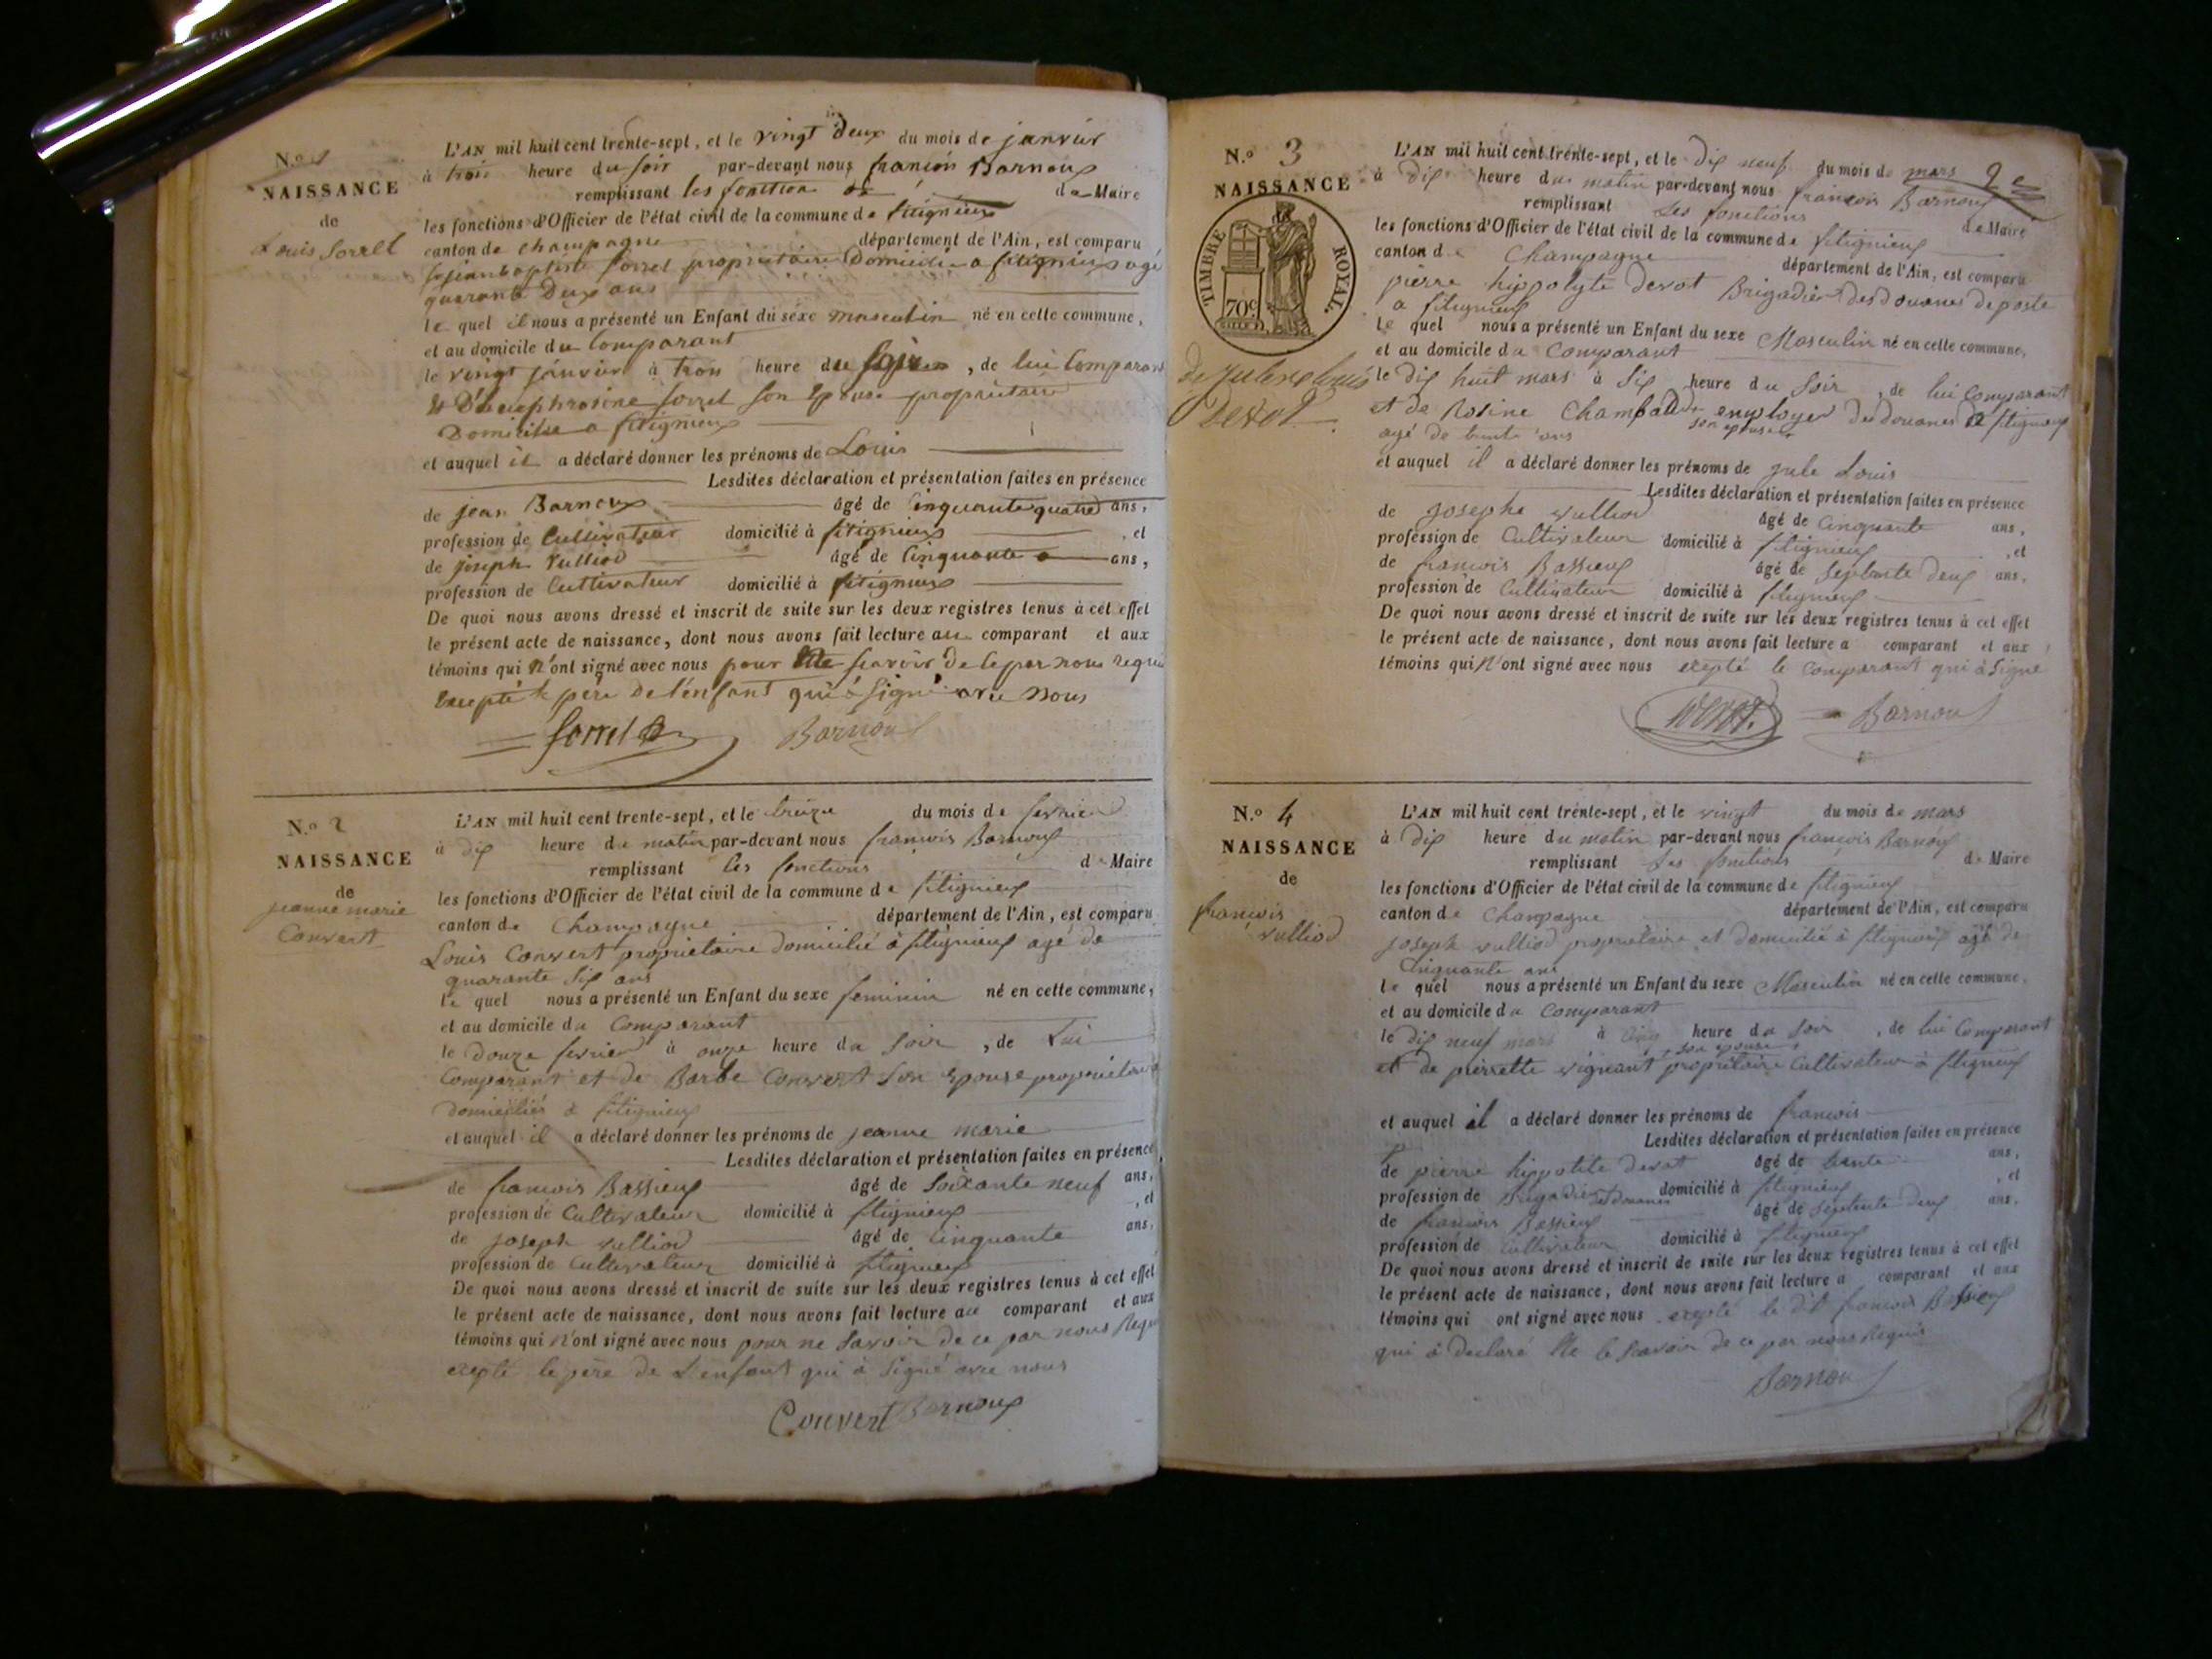 N.o 1
NAISSANCE
de
Louis Sorrel
L'AN mil huit cent trente-sept, et le vingt deux du mois de janvier
à trois heure du soir par-devant nous françois Barnoux
remplissant les fonction de Maire
les fonctions d'Officier de l'état civil de la commune de fitignieux
canton de champagne département de l'Ain, est comparu
sorrel propriétaire Domicilié a fitignieux agé
quarante Deux ans
le quel il nous a présenté un Enfant du sexe masculin né en cette commune,
et au domicile du Comparant
le vingt janvier à trois heure du soir, de lui Comparant
sorrel son Epouse propriétaire
Domicilié a fitignieux
et auquel il a déclaré donner les prénoms de Louis
Lesdites déclaration et présentation faites en présence
de jean Barnoux âgé de Cinquante quatre ans,
profession de Cultivateur domicilié à fitignieux, et
de joseph Vulliod âgé de Cinquante ans,
profession de Cultivateur domicilié à fitignieux
De quoi nous avons dressé et inscrit de suite sur les deux registres tenus à cet effet
le présent acte de naissance, dont nous avons fait lecture au comparant et aux
témoins qui n'ont signé avec nous pour ne savoir de ce par nous requi
Excepté le père De l'enfant qui à signé avec nous
Sorrel Barnoux
N.o 2
NAISSANCE
de
jeanne marie
Convert
L'AN mil huit cent trente-sept, et le treize du mois de fevrier
à dix heure du matin par-devant nous françois Barnoux
remplissant les fonctions de Maire
les fonctions d'Officier de l'état civil de la commune de fitignieux
canton de Champagne département de l'Ain, est comparu
Louis Convert propriétaire domicilié à fitignieux agé de
quarante six ans
le quel nous a présenté un Enfant du sexe feminin né en cette commune,
et au domicile du Comparant
le douze fevrier à onze heure du soir, de Lui
Comparant et de Barbe Convert son epouse propriétaire
domiciliés à fitignieux
et auquel il a déclaré donner les prénoms de jeanne marie
Lesdites déclaration et présentation faites en présence,
de françois Bassieux âgé de soixante neuf ans,
profession de Cultivateur domicilié à fitignieux, et
de joseph vulliod âgé de Cinquante ans,
profession de Cultivateur domicilié à fitignieux
De quoi nous avons dressé et inscrit de suite sur les deux registres tenus à cet effet
le présent acte de naissance, dont nous avons fait lecture au comparant et aux
témoins qui n'ont signé avec nous pour ne savoir de ce par nous Requi
excepté le père de L'enfant qui à signé avec nous
Convert Barnoux
N.o 3
NAISSANCE
TIMBRE ROYAL.
70c
de Jules louis
Devot
L'AN mil huit cent trente-sept, et le dix neuf du mois de mars 2e
à Dix heure du matin par-devant nous françois Barnoux
remplissant Les fonctions de Maire
les fonctions d'Officier de l'état civil de la commune de fitignieux
canton de Champagne département de l'Ain, est comparu
pierre hippolyte devot Brigadier des douanes de poste
a fitignieux
le quel nous a présenté un Enfant du sexe Masculin né en cette commune,
et au domicile du Comparant
le dix huit mars à six heure du soir, de lui Comparant
et de Rosine son epouse employer des douanes fitignieux
agé de trente ans
et auquel il a déclaré donner les prénoms de jule Louis
Lesdites déclaration et présentation faites en présence
de josephe vulliod âgé de Cinquante ans,
profession de Cultivateur domicilié à fitignieux, et
de françois Bassieux âgé de septente deux ans,
profession de Cultivateur domicilié à fitignieux
De quoi nous avons dressé et inscrit de suite sur les deux registres tenus à cet effet
le présent acte de naissance, dont nous avons fait lecture a comparant et aux
témoins qui n'ont signé avec nous exepté le Comparant qui à Signé
Devot. Barnoux
N.o 4
NAISSANCE
de
françois
vulliod
L'AN mil huit cent trente-sept, et le vingt du mois de mars
à Dix heure du matin par-devant nous françois Barnoux
remplissant Les fonctions de Maire
les fonctions d'Officier de l'état civil de la commune de fitignieux
canton de Champagne département de l'Ain, est comparu
joseph vulliod propriétaire et domicilié à fitignieux agé de
Cinquante ans
le quel nous a présenté un Enfant du sexe Masculin né en cette commune,
et au domicile du Comparant
le dix neuf mars à cinq heure du soir, de lui Comparant
et de pierrette vignant son epouse propriétaire Cultivateur à fitignieux
et auquel il a déclaré donner les prénoms de francois
Lesdites déclaration et présentation faites en présence
de pierre hippolite devot âgé de trente ans,
profession de Brigadier des douanes domicilié à fitignieux, et
de francois Bassieux âgé de septente deux ans,
profession de Cultivateur domicilié à fitignieux
De quoi nous avons dressé et inscrit de suite sur les deux registres tenus à cet effet
le présent acte de naissance, dont nous avons fait lecture a comparant et aux
témoins qui ont signé avec nous exepté le dit francois Bassieux
qui à declaré Ne le scavoir de ce par nous Requis
Barnoux